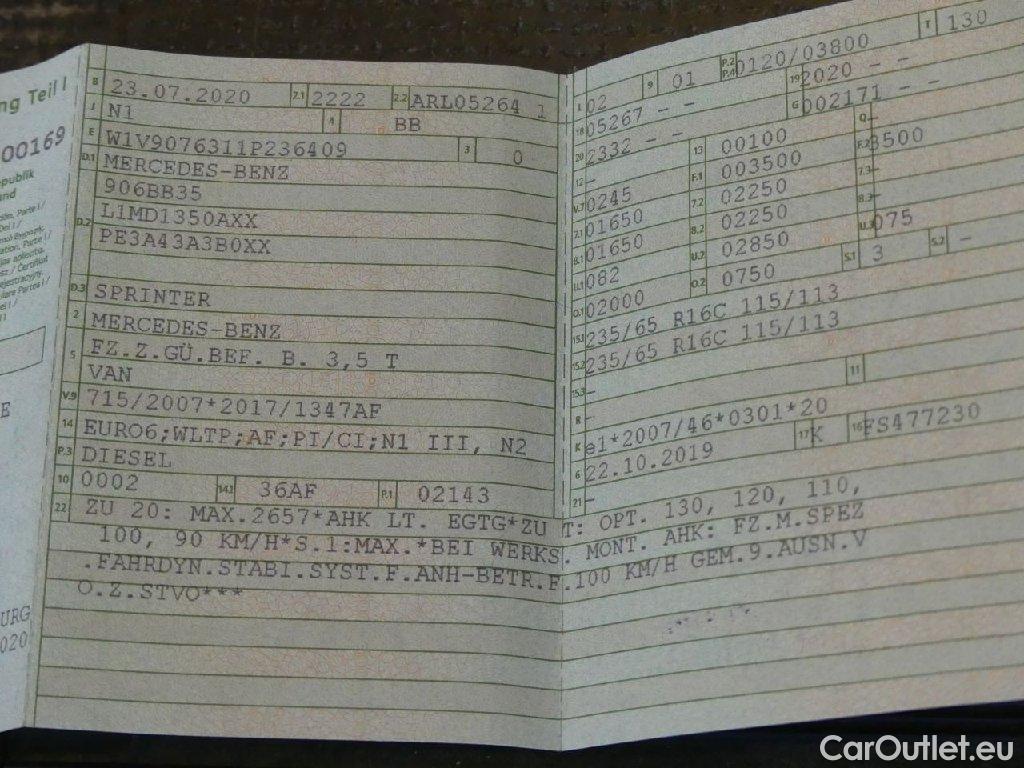 ng Teil I
00169
epublik
and
E
URG
020
B 23.07.2020 2.1 2222 2.2 ARL05264 1
J N1 4 BB
E W1V9076311P236409 3 0
D.1 MERCEDES-BENZ
906BB35
D.2 L1MD1350AXX
PE3A43A3B0XX
D.3 SPRINTER
2 MERCEDES-BENZ
5 FZ.Z.GÜ.BEF. B. 3,5 T
VAN
V.9 715/2007*2017/1347AF
14 EURO6;WLTP;AF;PI/CI;N1 III, N2
P.3 DIESEL
10 0002 14.1 36AF P.1 02143
L 02 9 01 P.2 P.4 0120/03800 T 130
18 05267 - - 19 2020 - -
20 2332 - - G 002171 - -
12 - 13 00100 Q -
V.7 0245 F.1 003500 F.2 3500
7.1 01650 7.2 02250 7.3 -
8.1 01650 8.2 02250 8.3 -
U.1 082 U.2 02850 U.3 075
O.1 02000 O.2 0750 S.1 3 S.2 -
15.1 235/65 R16C 115/113
15.2 235/65 R16C 115/113
15.3 -
R - 11
K e1*2007/46*0301*20
6 22.10.2019 17 K 16 FS477230
21 -
22 ZU 20: MAX.2657*AHK LT. EGTG*ZU T: OPT. 130, 120, 110,
100, 90 KM/H*S.1:MAX.*BEI WERKS. MONT. AHK: FZ.M.SPEZ
.FAHRDYN.STABI.SYST.F.ANH-BETR.F.100 KM/H GEM.9.AUSN.V
O.Z.STVO***
CarOutlet.eu